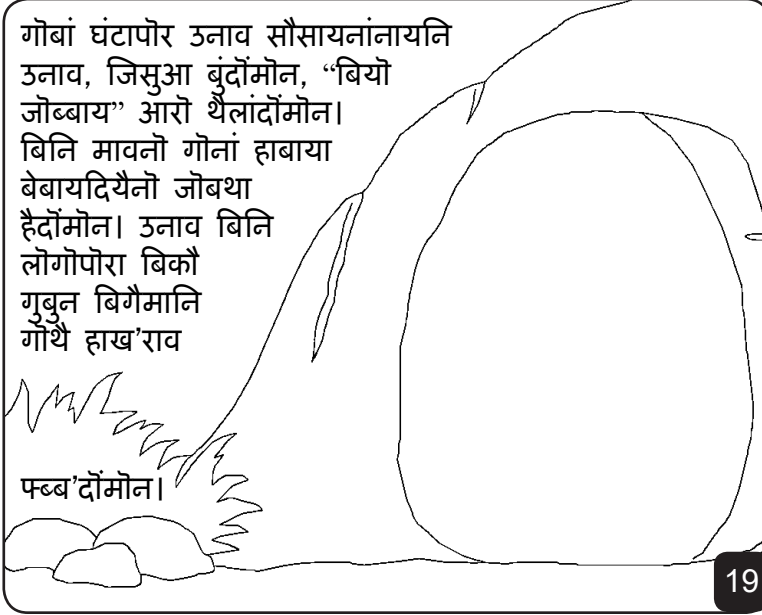 गॊबां घंटापॊर उनाव सौसायनांनायनि
उनाव, जिसुआ बुंदॊंमॊन, “बियॊ
जॊब्बाय” आरॊ थैलांदॊंमॊन।
बिनि मावनॊ गॊनां हाबाया
बेबायदियैनॊ जॊबथा
हैदॊंमॊन। उनाव बिनि
लॊगॊपॊरा बिकौ
गुबुन बिगैमानि
गॊथै हाख’राव
फ्ब्ब’दॊंमॊन।
19